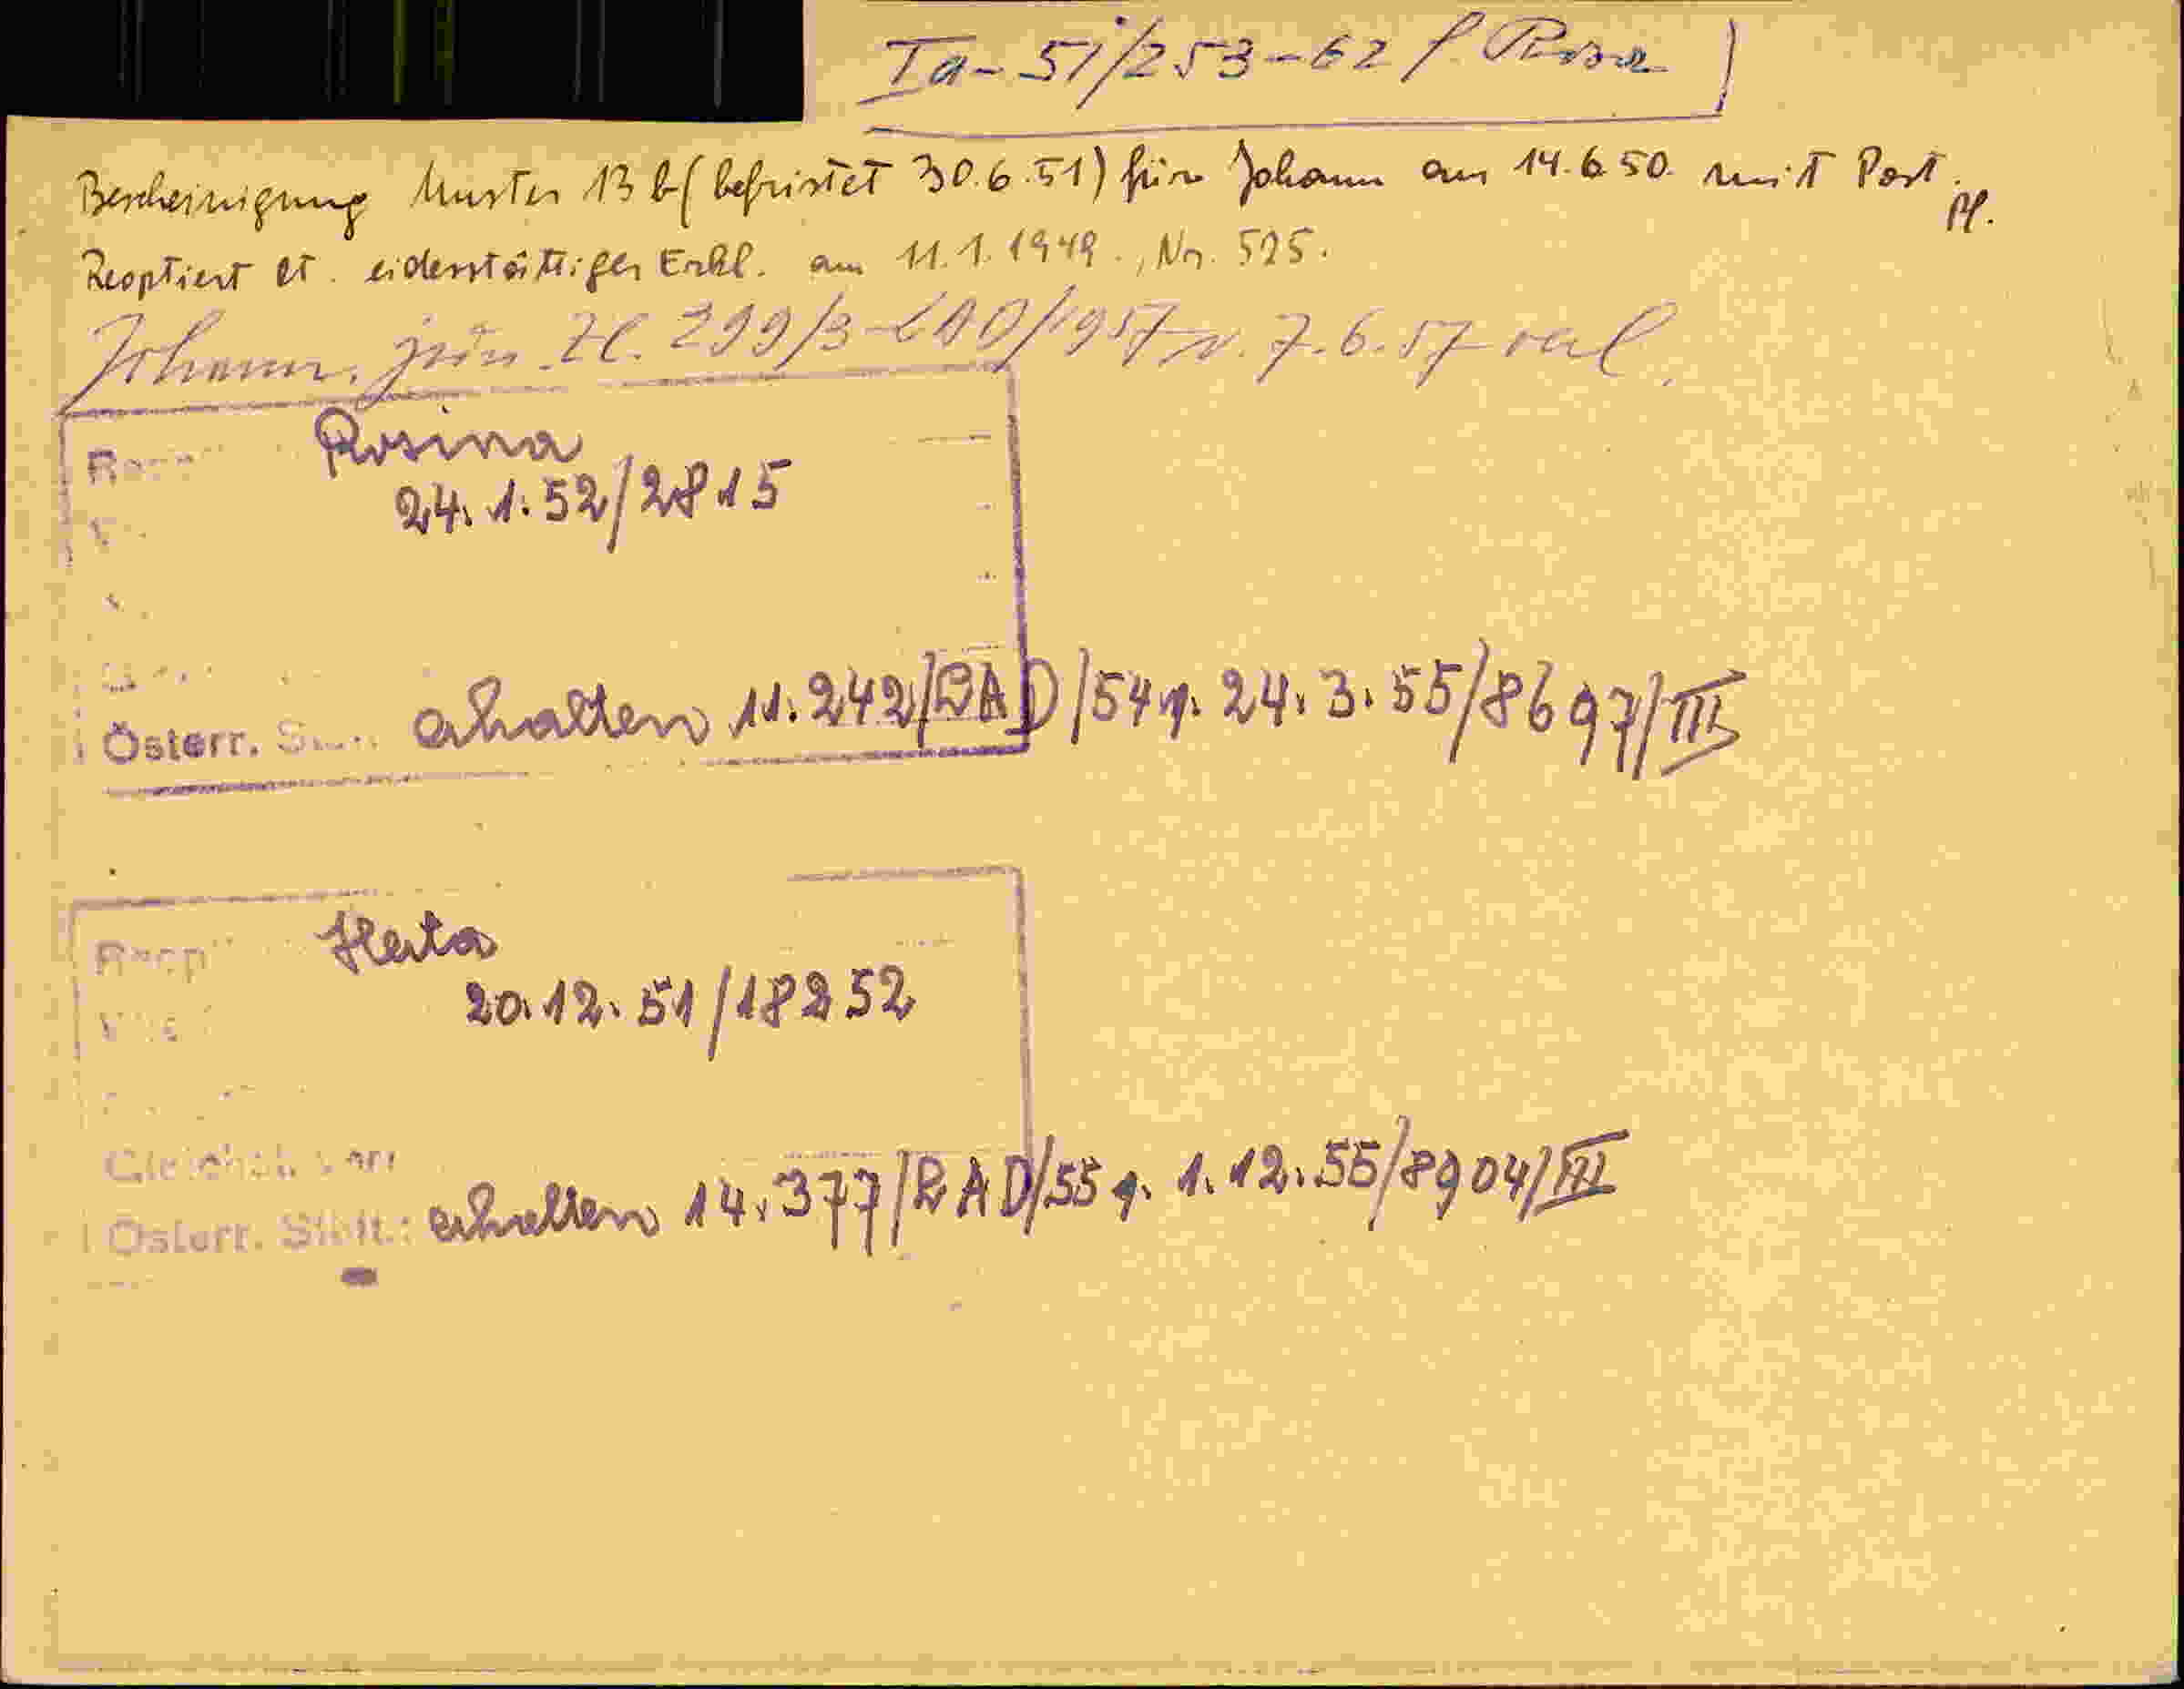 Ia-51/253-62 f. Rosa
Bescheinigung Muster 13 b (befristet 30.6.51) für Johann am 14.6.50. mit Post.
Pf.
Reoptiert lt. eidesstattiger Erkl. am 11.1.1949., Nr. 525.
Johann, jun. Zl. 299/3-LAD/1957 v. 7.6.57
Rosina
24.1.52/2815
Österr. erhalten 11.242/LAD/54 v. 24.3.55/8697/III
Herta
20.12.51/18252
Österr. Stblt.: erhalten 14.377/LAD/55 v. 1.12.55/8904/III